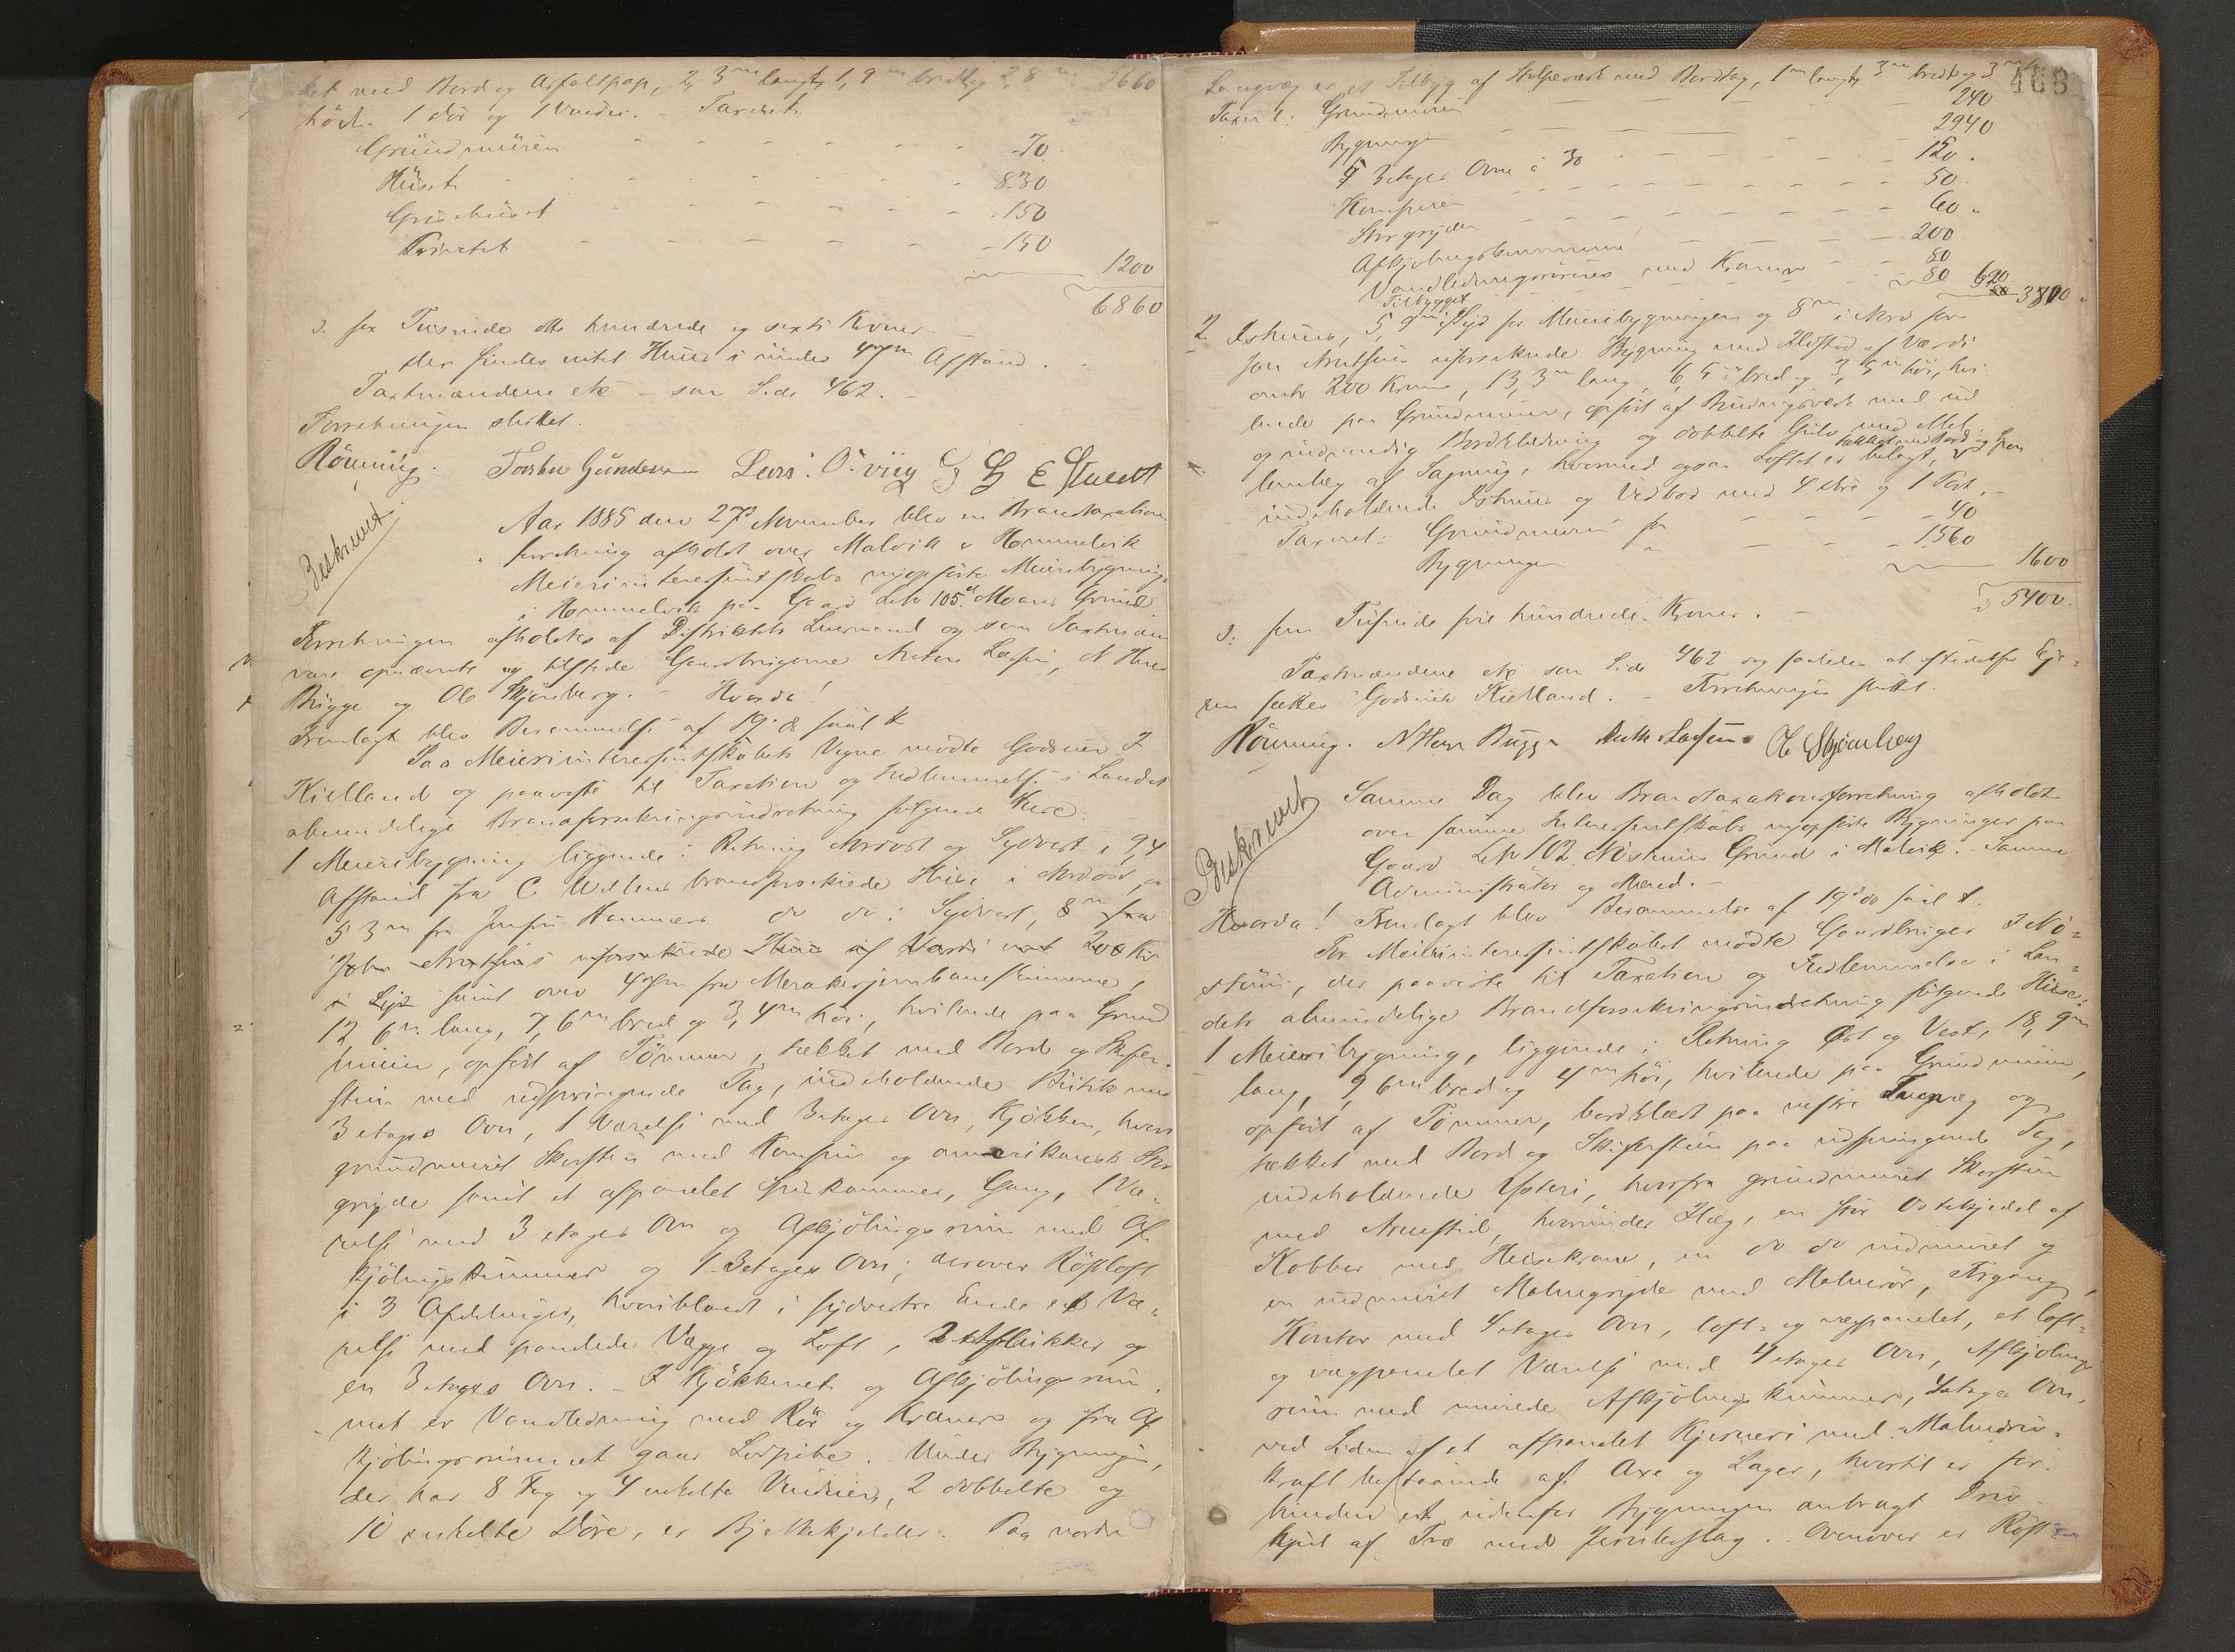 tet med Bord og Asfaltpap, 2,3 m langt, 1,9 m bredt og 2,8 m 5660
höit. 1 dör og 1 Vindu. – Taxeret:
Grundmuren – – – – – – 70.
Huset – – – – – – 830
Grisehuset – – – – – – 150
Privetet – – – – – – 150
1200
6860
d. sex Tusinde otte hundrede og sexti Kroner. –
der findes intet Huus i under Afstand.
Taxtmændene etc – som Side 462. –
Forretningen sluttet.
Rönning. Torsten Gundersen Lars Öiing E Stuedt
Beskrevet.
Aar 1885 den 27d November blev en Brandtaxations
forretning afholdt over Malvik & Hommelvik
Meieriinteressentskabs nyopförte Meieribygning
i Hommelvik paa Gaard No 105d Moanes Grund.
Forretningen afholdtes af Distriktets Lensmand og som Taxtmænd
vare opnævnte og tilstede Gaardbrugerne Anton Larsen, N Hans
Bügge og Ole Stjönberg. – Hvorda!
Fremlagt blev Berammelse af 19. ds saal #
Paa Meieriinteressentskabets Vegne mödte Godseier J
Kielland og paaviste til Taxation og Indlemmelse i Landets
almindelige Brandforsikringsindretning fölgende Huse:
1 Meieribygning liggende i Retning Nordost og Sydvest, 94
Afstand fra C Wullums brandforsikrede Huse i Nordost,
53 m fra Hammers do do i Sydvest, 8 m fra
John Arntsens uforsikrede Huus af Værdi omt 200 Kr
i Syd samt over fra Merakerjernbaneskinnerne,
12,6 m lang, 7,6 m bred og 3,4 m höi, hvilende paa Grund
muur, opfört af Tömmer, tækket med Bord og Skifer-
steen med udspringende Tag, indeholdende Butik med
3 etages Ovn, 1 Værelse med 3 etages Ovn, Kjökken, hvori
grundmuret Skorsten med Komfur og amerikansk Stor
gryde samt et afpanelet Spiskammer, Gang, 1 Væ-
relse med 3 etages Ovn og Afkjölingsrum med Af-
kjölingskummer og 1 3 etages Ovn; derover Röstloft
i 3 Afdelinger, hvoriblandt i sydvestre Ende et Væ-
relse med panelede Vægge og Loft, 2 Aflukker og
en 3 etages Ovn. – I Kjökkenet og Afkjölingsrum-
met er Vandledning med Rör og Kraner og fra Af
kjölingsrummet gaar Ledpibe. Under Bygningen,
der har 8 Fag og 4 enkelte Vinduer, 2 dobbelte og
10 enkelte Döre, er Bjelkekjelder. Paa nordre
468
Langvæg er et Tilbyg af Stolpeværk med Bordtag, 1 m langt, 3 m bredt og 3 m
Taxeret: Grundmuren – – – 240
Bygningen – – – 2940
4 3 etages Ovne à 30 – – – 120.
Komfuren – – – 50.
Storgryden – – – 60.
Afkjölingskummerne – – – 200
Vandledningsrörene med Kraner – – 80
Tilbygget – – – 80 690
3800.
2 Ishuus, 5,9 m i Syd for Meieribygningen og 8 m i Nord for
John Arntsens uforsikrede Bygning med Ildsted af Værdi
omtr 200 Kroner, 13,3 m lang, 6,5 m bred og 3,5 m höi, hvi-
lende paa Grundmuur, opfört af Bindingsværk med ud
og indvendig Bordklædning og dobbelte Gulv med Mel-
lemlæg af Sagmug, hvormed ogsaa Loftet er belagt, tækket med Bord og Spon
indeholdende Ishuus og Vedbod med 4 döre og 1 Port. –
Taxeret: Grundmuren for – – – 40
Bygningen " – – – 1560
1600
5400.
d. fem Tusinde fire hundrede Kroner. –
Taxtmændene etc som Side 462 og saaledes at istedetfor Eje-
ren sættes Godseier Kielland. – Forretningen sluttet.
Rönning. N Hans Bügge Anton Larsen Ole Stjönberg
Beskrevet
Samme Dag blev Brandtaxationsforretning afholdt
over samme Interessentskabs nyopförte Bygninger paa
Gaard No 102 Grund i Malvik. – Samme
Administrator og Mænd. –
Hvorda! Fremlagt blev Berammelse af 19d ds saal #.
For Meieriinteressentskabet mödte Gaardbruger J Nö-
stum, der paaviste til Taxation og Indlemmelse i Lan-
dets almindelige Brandforsikringsindretning fölgende Huse:
1 Meieribygning, liggende i Retning Øst og Vest, 18,9 m
lang, 9,6 m bred og 4 m höi, hvilende paa Grundmuur,
opfört af Tömmer, bordklædt paa vestre Langvæg og
tækket med Bord og Skifersteen paa udspringende Tag,
indeholdende Ysteri, hvorfra grundmuret Skorsteen
med Arnested, hvorunder Hvælv, en stor Ostekjedel af
Kobber med Heisekrane, en do do indmuret og
en indmuret Malmgryde med Malmrör, Forgang,
Kontor med 4 etages Ovn, loft- og vægpanelet, et loft-
og vægpanelet Værelse med 4 etages Ovn, Afkjölings
rum med murede Afkjölingskummer, 4 etages Ovn,
ved Siden af et afpanelet Kjerneri med Malmdriv-
kraft bestaaende af Axe og Lager, hvortil er for-
bunden et udenfor Bygningen anbragt Driv
hjul af Træ med Jernbeslag. Ovenover er Röst